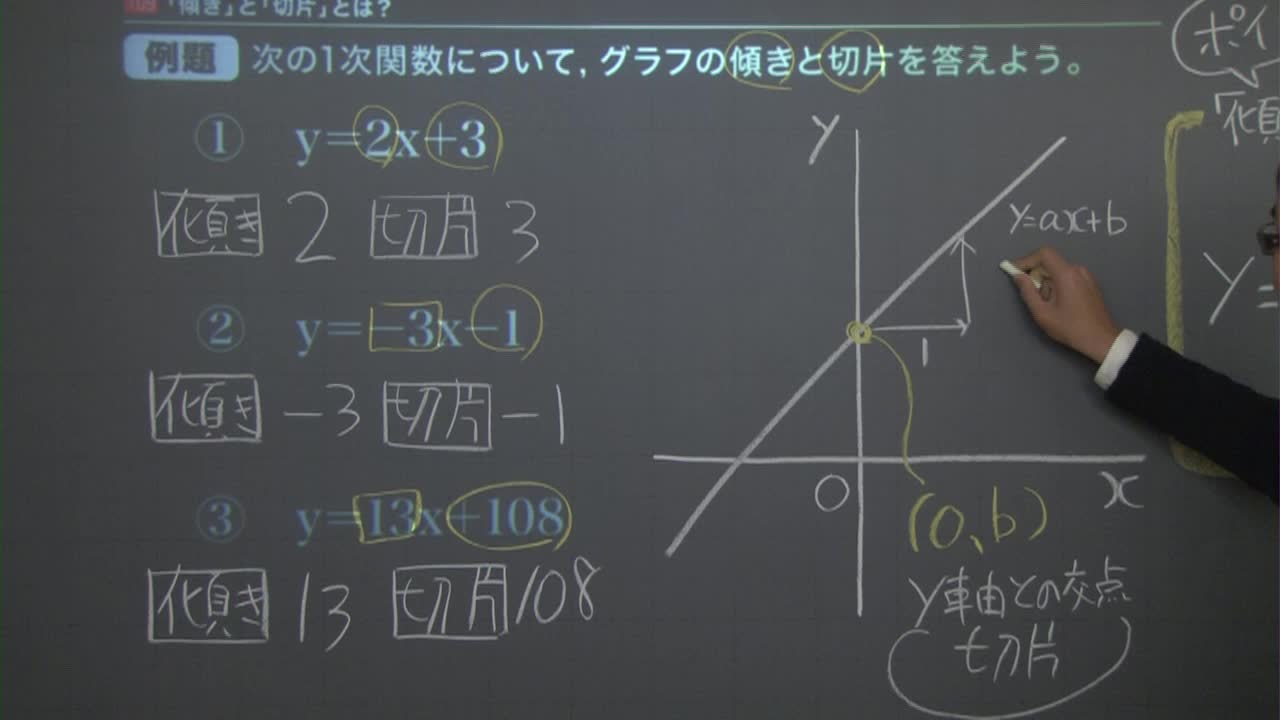 109 「傾き」と「切片」とは?
例題 次の1次関数について,グラフの傾きと切片を答えよう。
① y=2x+3
傾き 2 切片 3
② y=-3x-1
傾き -3 切片 -1
③ y=13x+108
傾き 13 切片 108
y
y=ax+b
1
O
x
(0,b)
y軸との交点
切片
ポイ
「傾
y=